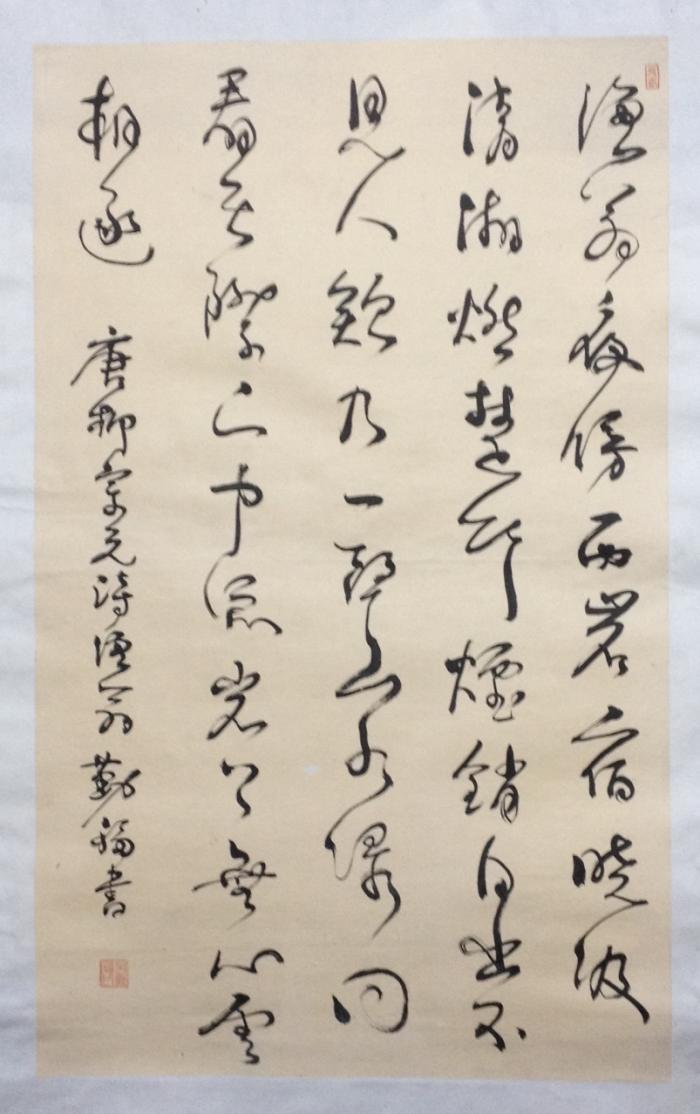 漁翁夜傍西岩宿曉汲
清湘燃楚竹煙銷日出不
見人欸乃一聲山水綠回
看天際下中流岩上無心雲
相逐 唐柳宗元詩漁翁 勤福書